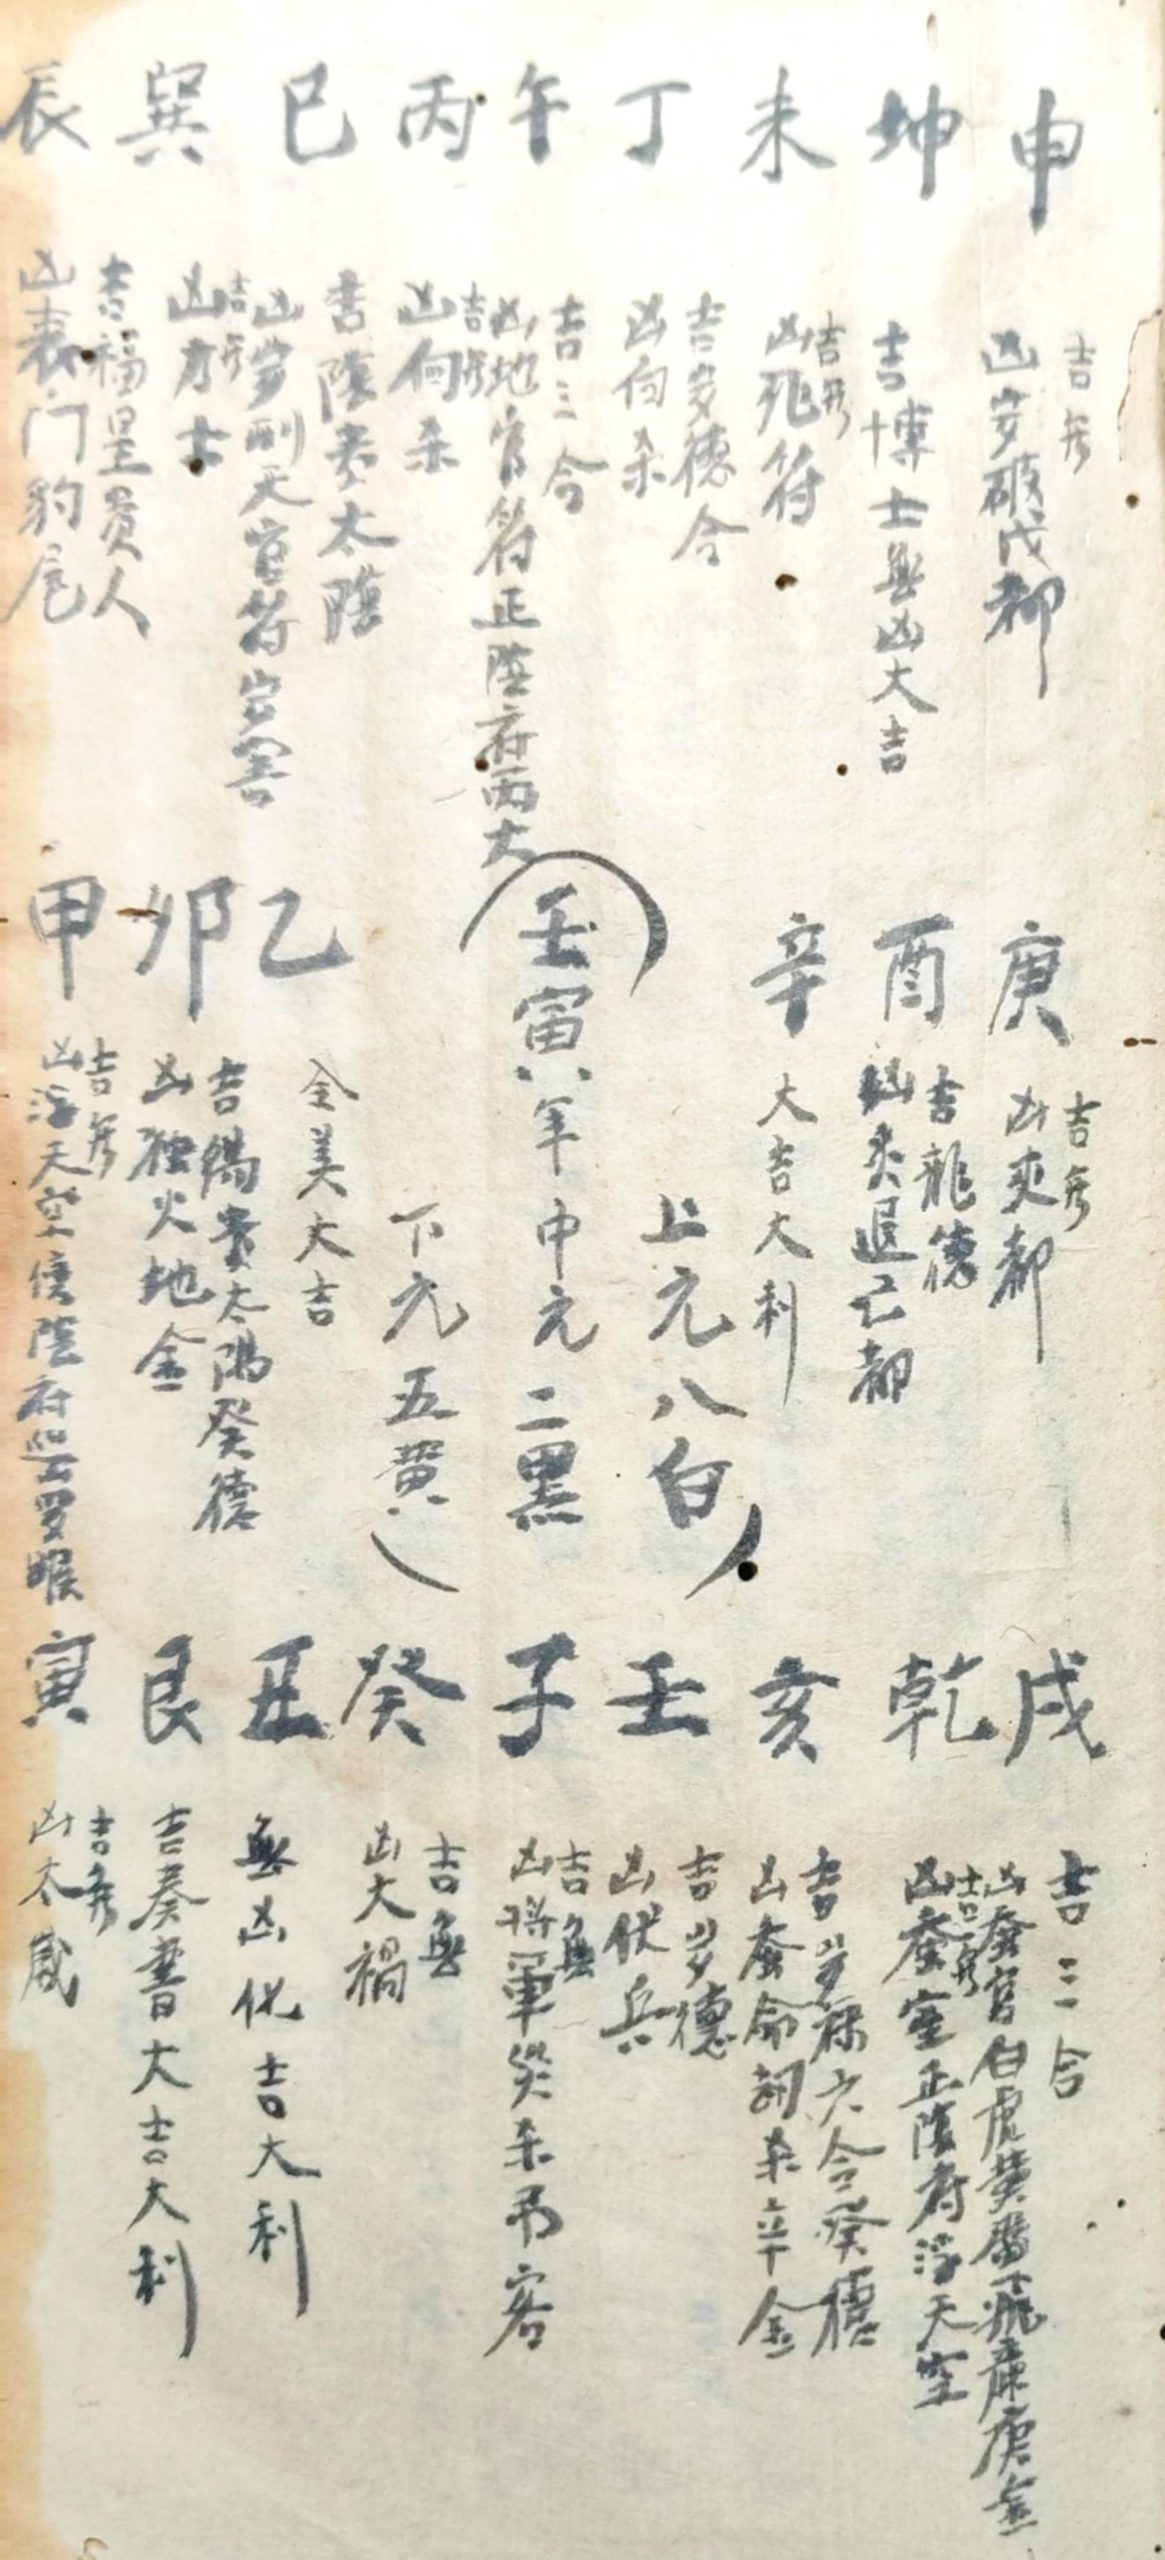 申
吉无
凶岁破戊都
坤
吉博士無凶大吉
未
吉无
凶死符
丁
吉岁德合
凶向杀
午
吉三合
凶地官符正陰府丙大
丙
吉无
凶向杀
巳
吉陰贵太陰
凶岁刑天官符岁害
巽
吉无
凶力士
辰
吉福星贵人
凶丧门豹尾
庚
吉无
凶
都
酉
吉龍德
凶炙退己都
辛
大吉大利
上元八白
壬寅年中元二黑
下元五黄
乙
全美大吉
卯
吉陽贵太陽癸德
凶独火地金
甲
吉无
凶浮天空傍陰府
罗睺
戌
吉三合
凶蚕官白虎黄
飛廉庚金
乾
吉无
凶蚕室正陰府浮天空
亥
吉岁禄六合癸德
凶蚕命刧杀辛金
壬
吉岁德
凶伏兵
子
吉無
凶将軍災杀吊客
癸
吉無
凶大禍
丑
無凶化吉大利
艮
吉奏書大吉大利
寅
吉无
凶太歲